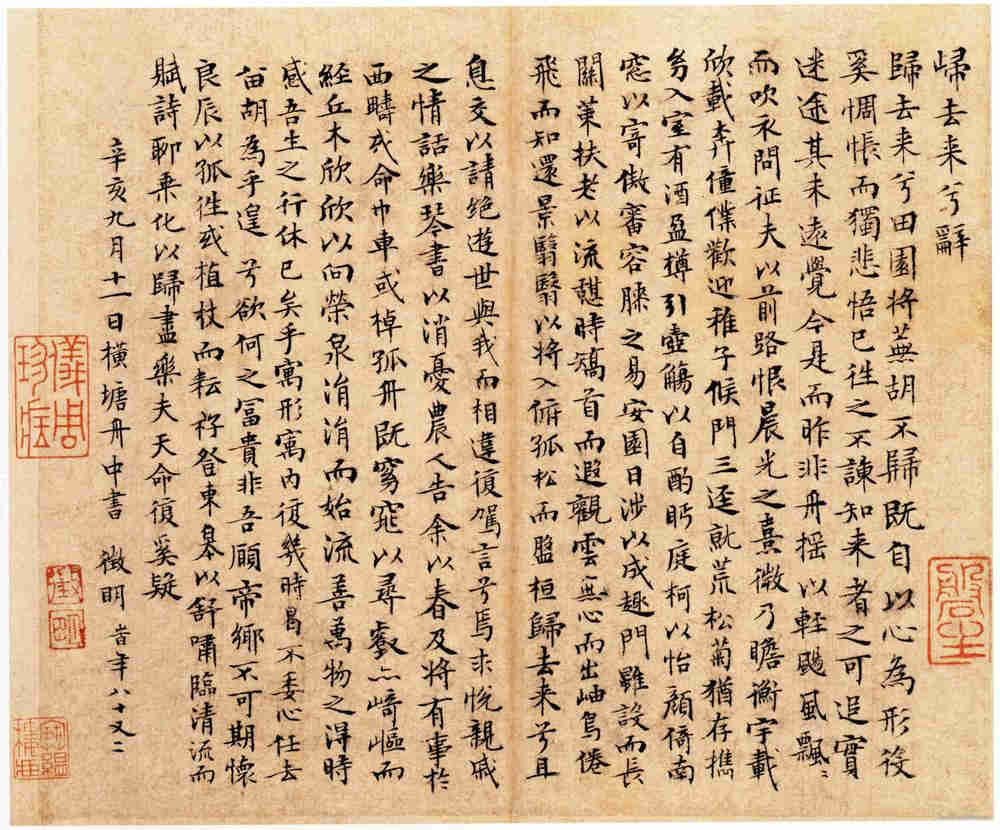 歸去来兮辭
歸去来兮田園将蕪胡不歸既自以心為形役
奚惆悵而獨悲悟已徃之不諫知来者之可追實
迷途其未遠覺今是而昨非舟揺以輊颺風飄〻
而吹衣問征夫以前路恨晨光之熹微乃瞻衡宇載
欣載奔僮僕歡迎稚子候門三逕就荒松菊猶存攜
幼入室有酒盈樽引壺觴以自酌眄庭柯以怡顔倚南
窓以寄傲審容膝之易安園日涉以成趣門雖設而長
關策扶老以流憇時矯首而遐觀雲無心而出岫鳥倦
飛而知還景翳翳以将入俯孤松而盤桓歸去来兮且
息交以請絶遊世與我而相違復駕言兮焉求悅親戚
之情話樂琴書以消憂農人告余以春及将有事於
西疇或命巾車或棹孤舟既窈窕以尋壑亦崎嶇而
経丘木欣欣以向榮泉涓涓而始流善萬物之得時
感吾生之行休已矣乎寓形寓内復幾時曷不委心任去
留胡為乎遑兮欲何之冨貴非吾願帝鄉不可期懷
良辰以孤徃或植杖而耘耔登東皋以舒嘯臨清流而
賦詩聊乗化以歸盡樂夫天命復奚疑
辛亥九月十一日橫塘舟中書 徵明 旹年八十又二
儀周珍蔵
徵明